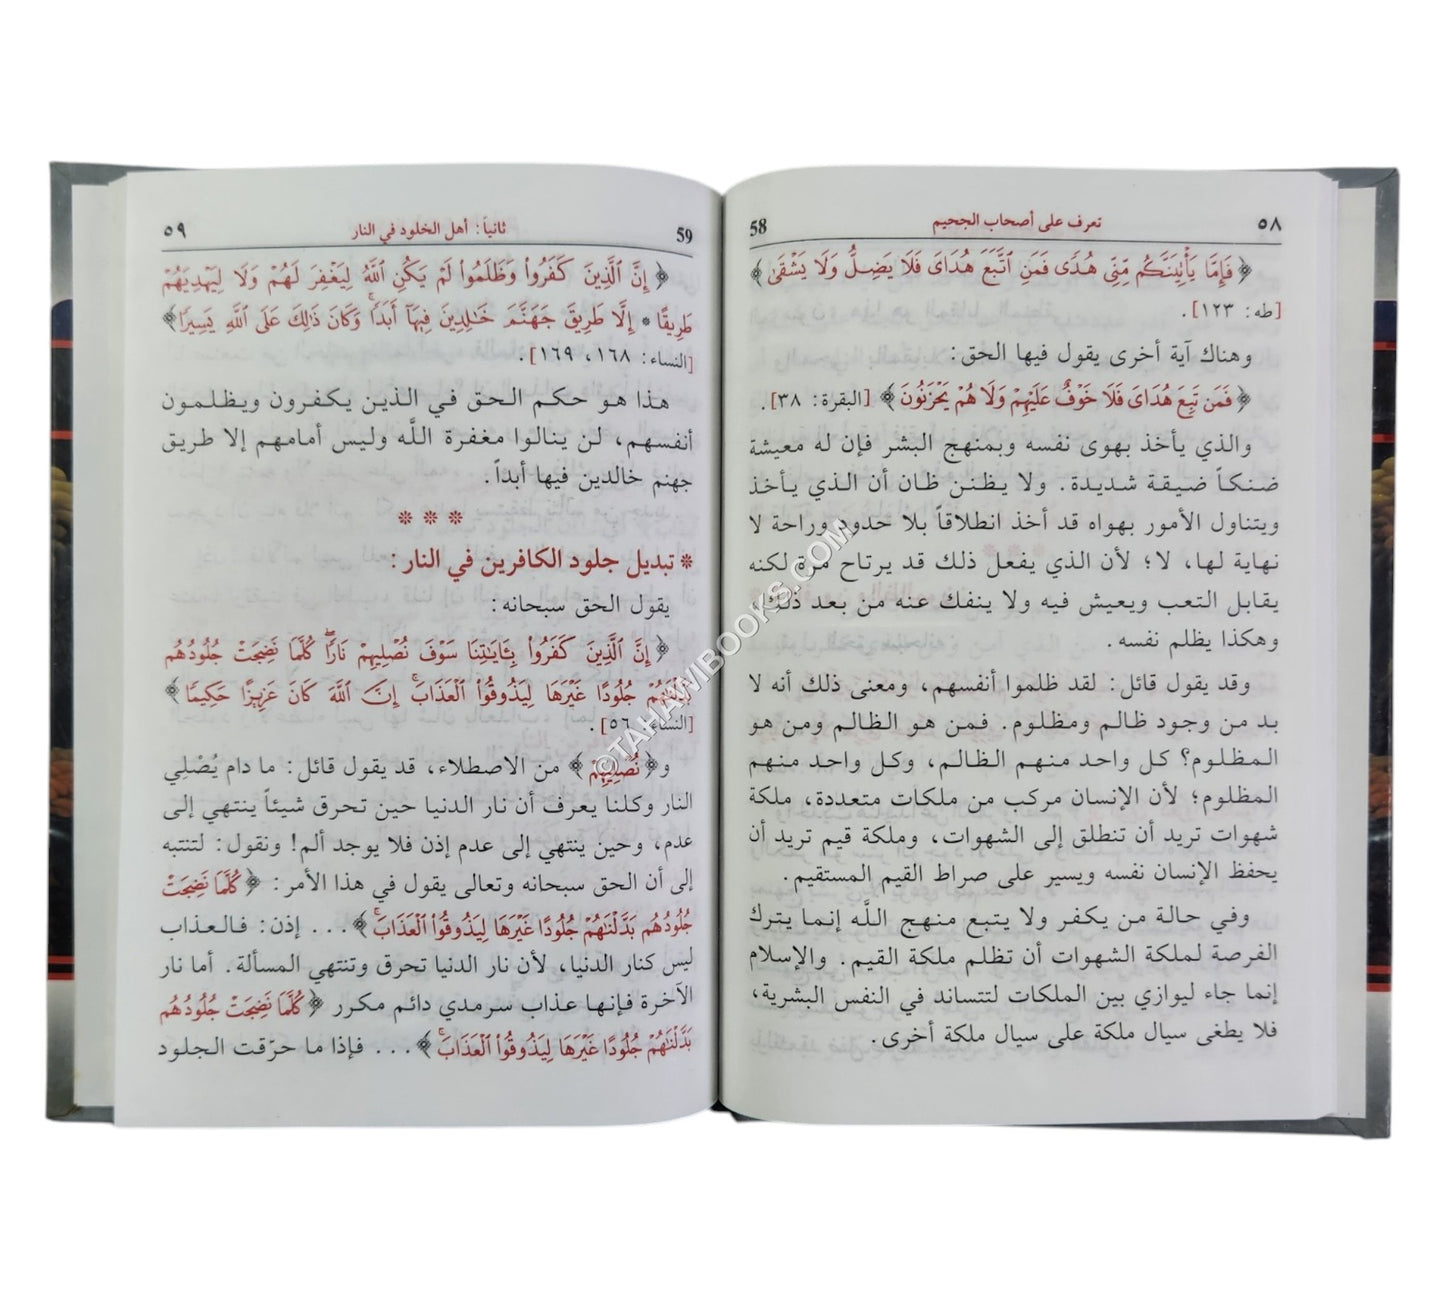 ٥٨ تعرف على أصحاب الجحيم 58
﴿ فَإِمَّا يَأْتِيَنَّكُم مِّنِّي هُدًى فَمَنِ ٱتَّبَعَ هُدَايَ فَلَا يَضِلُّ وَلَا يَشْقَىٰ ﴾
[طه: ١٢٣].
وهناك آية أخرى يقول فيها الحق:
﴿ فَمَن تَبِعَ هُدَايَ فَلَا خَوْفٌ عَلَيْهِمْ وَلَا هُمْ يَحْزَنُونَ ﴾ [البقرة: ٣٨].
والذي يأخذ بهوى نفسه وبمنهج البشر فإن له معيشة
ضنكاً ضيقة شديدة. ولا يظنن ظان أن الذي يأخذ
ويتناول الأمور بهواه قد أخذ انطلاقاً بلا حدود وراحة لا
نهاية لها، لا؛ لأن الذي يفعل ذلك قد يرتاح مرة لكنه
يقابل التعب ويعيش فيه ولا ينفك عنه من بعد ذلك.
وهكذا يظلم نفسه.
وقد يقول قائل: لقد ظلموا أنفسهم، ومعنى ذلك أنه لا
بد من وجود ظالم ومظلوم. فمن هو الظالم ومن هو
المظلوم؟ كل واحد منهم الظالم، وكل واحد منهم
المظلوم؛ لأن الإنسان مركب من ملكات متعددة، ملكة
شهوات تريد أن تنطلق إلى الشهوات، وملكة قيم تريد أن
يحفظ الإنسان نفسه ويسير على صراط القيم المستقيم.
وفي حالة من يكفر ولا يتبع منهج اللَّه إنما يترك
الفرصة لملكة الشهوات أن تظلم ملكة القيم. والإسلام
إنما جاء ليوازي بين الملكات لتتساند في النفس البشرية،
فلا يطغى سيال ملكة على سيال ملكة أخرى.
59 ثانياً: أهل الخلود في النار ٥٩
﴿ إِنَّ ٱلَّذِينَ كَفَرُوا۟ وَظَلَمُوا۟ لَمْ يَكُنِ ٱللَّهُ لِيَغْفِرَ لَهُمْ وَلَا لِيَهْدِيَهُمْ
طَرِيقًا * إِلَّا طَرِيقَ جَهَنَّمَ خَٰلِدِينَ فِيهَآ أَبَدًا ۚ وَكَانَ ذَٰلِكَ عَلَى ٱللَّهِ يَسِيرًا ﴾
[النساء: ١٦٨، ١٦٩].
هذا هو حكم الحق في الذين يكفرون ويظلمون
أنفسهم، لن ينالوا مغفرة اللَّه وليس أمامهم إلا طريق
جهنم خالدين فيها أبداً.
* * *
* تبديل جلود الكافرين في النار:
يقول الحق سبحانه:
﴿ إِنَّ ٱلَّذِينَ كَفَرُوا۟ بِـَٔايَٰتِنَا سَوْفَ نُصْلِيهِمْ نَارًا ۖ كُلَّمَا نَضِجَتْ جُلُودُهُم
بَدَّلْنَٰهُمْ جُلُودًا غَيْرَهَا لِيَذُوقُوا۟ ٱلْعَذَابَ ۗ إِنَّ ٱللَّهَ كَانَ عَزِيزًا حَكِيمًا ﴾
[النساء: ٥٦].
و﴿ نُصْلِيهِمْ ﴾ من الاصطلاء، قد يقول قائل: ما دام يُصْلِي
النار وكلنا يعرف أن نار الدنيا حين تحرق شيئاً ينتهي إلى
عدم، وحين ينتهي إلى عدم إذن فلا يوجد ألم! ونقول: لتنتبه
إلى أن الحق سبحانه وتعالى يقول في هذا الأمر: ﴿ كُلَّمَا نَضِجَتْ
جُلُودُهُم بَدَّلْنَٰهُمْ جُلُودًا غَيْرَهَا لِيَذُوقُوا۟ ٱلْعَذَابَ ۗ ﴾... إذن: فالعذاب
ليس كنار الدنيا، لأن نار الدنيا تحرق وتنتهي المسألة. أما نار
الآخرة فإنها عذاب سرمدي دائم مكرر ﴿ كُلَّمَا نَضِجَتْ جُلُودُهُم
بَدَّلْنَٰهُمْ جُلُودًا غَيْرَهَا لِيَذُوقُوا۟ ٱلْعَذَابَ ۗ ﴾... فإذا ما حرّقت الجلود
©TAHAWIBOOKS.COM